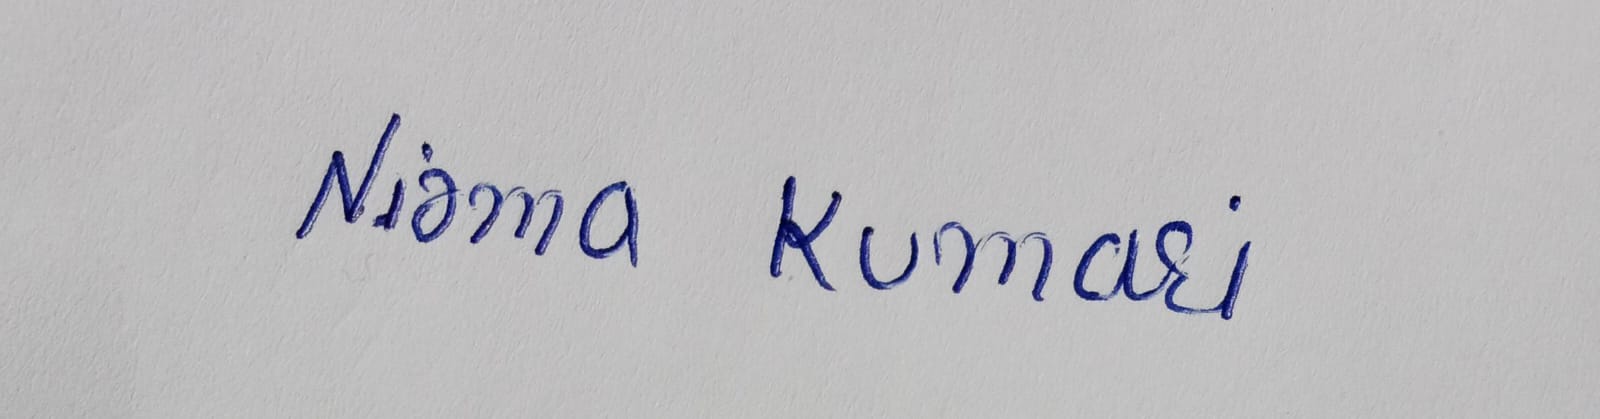 Nisma Kumari